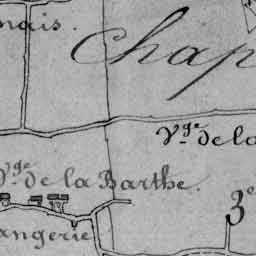 nais.
Chap
V.ge de la
V.ge de la Barthe.
3°
angerie